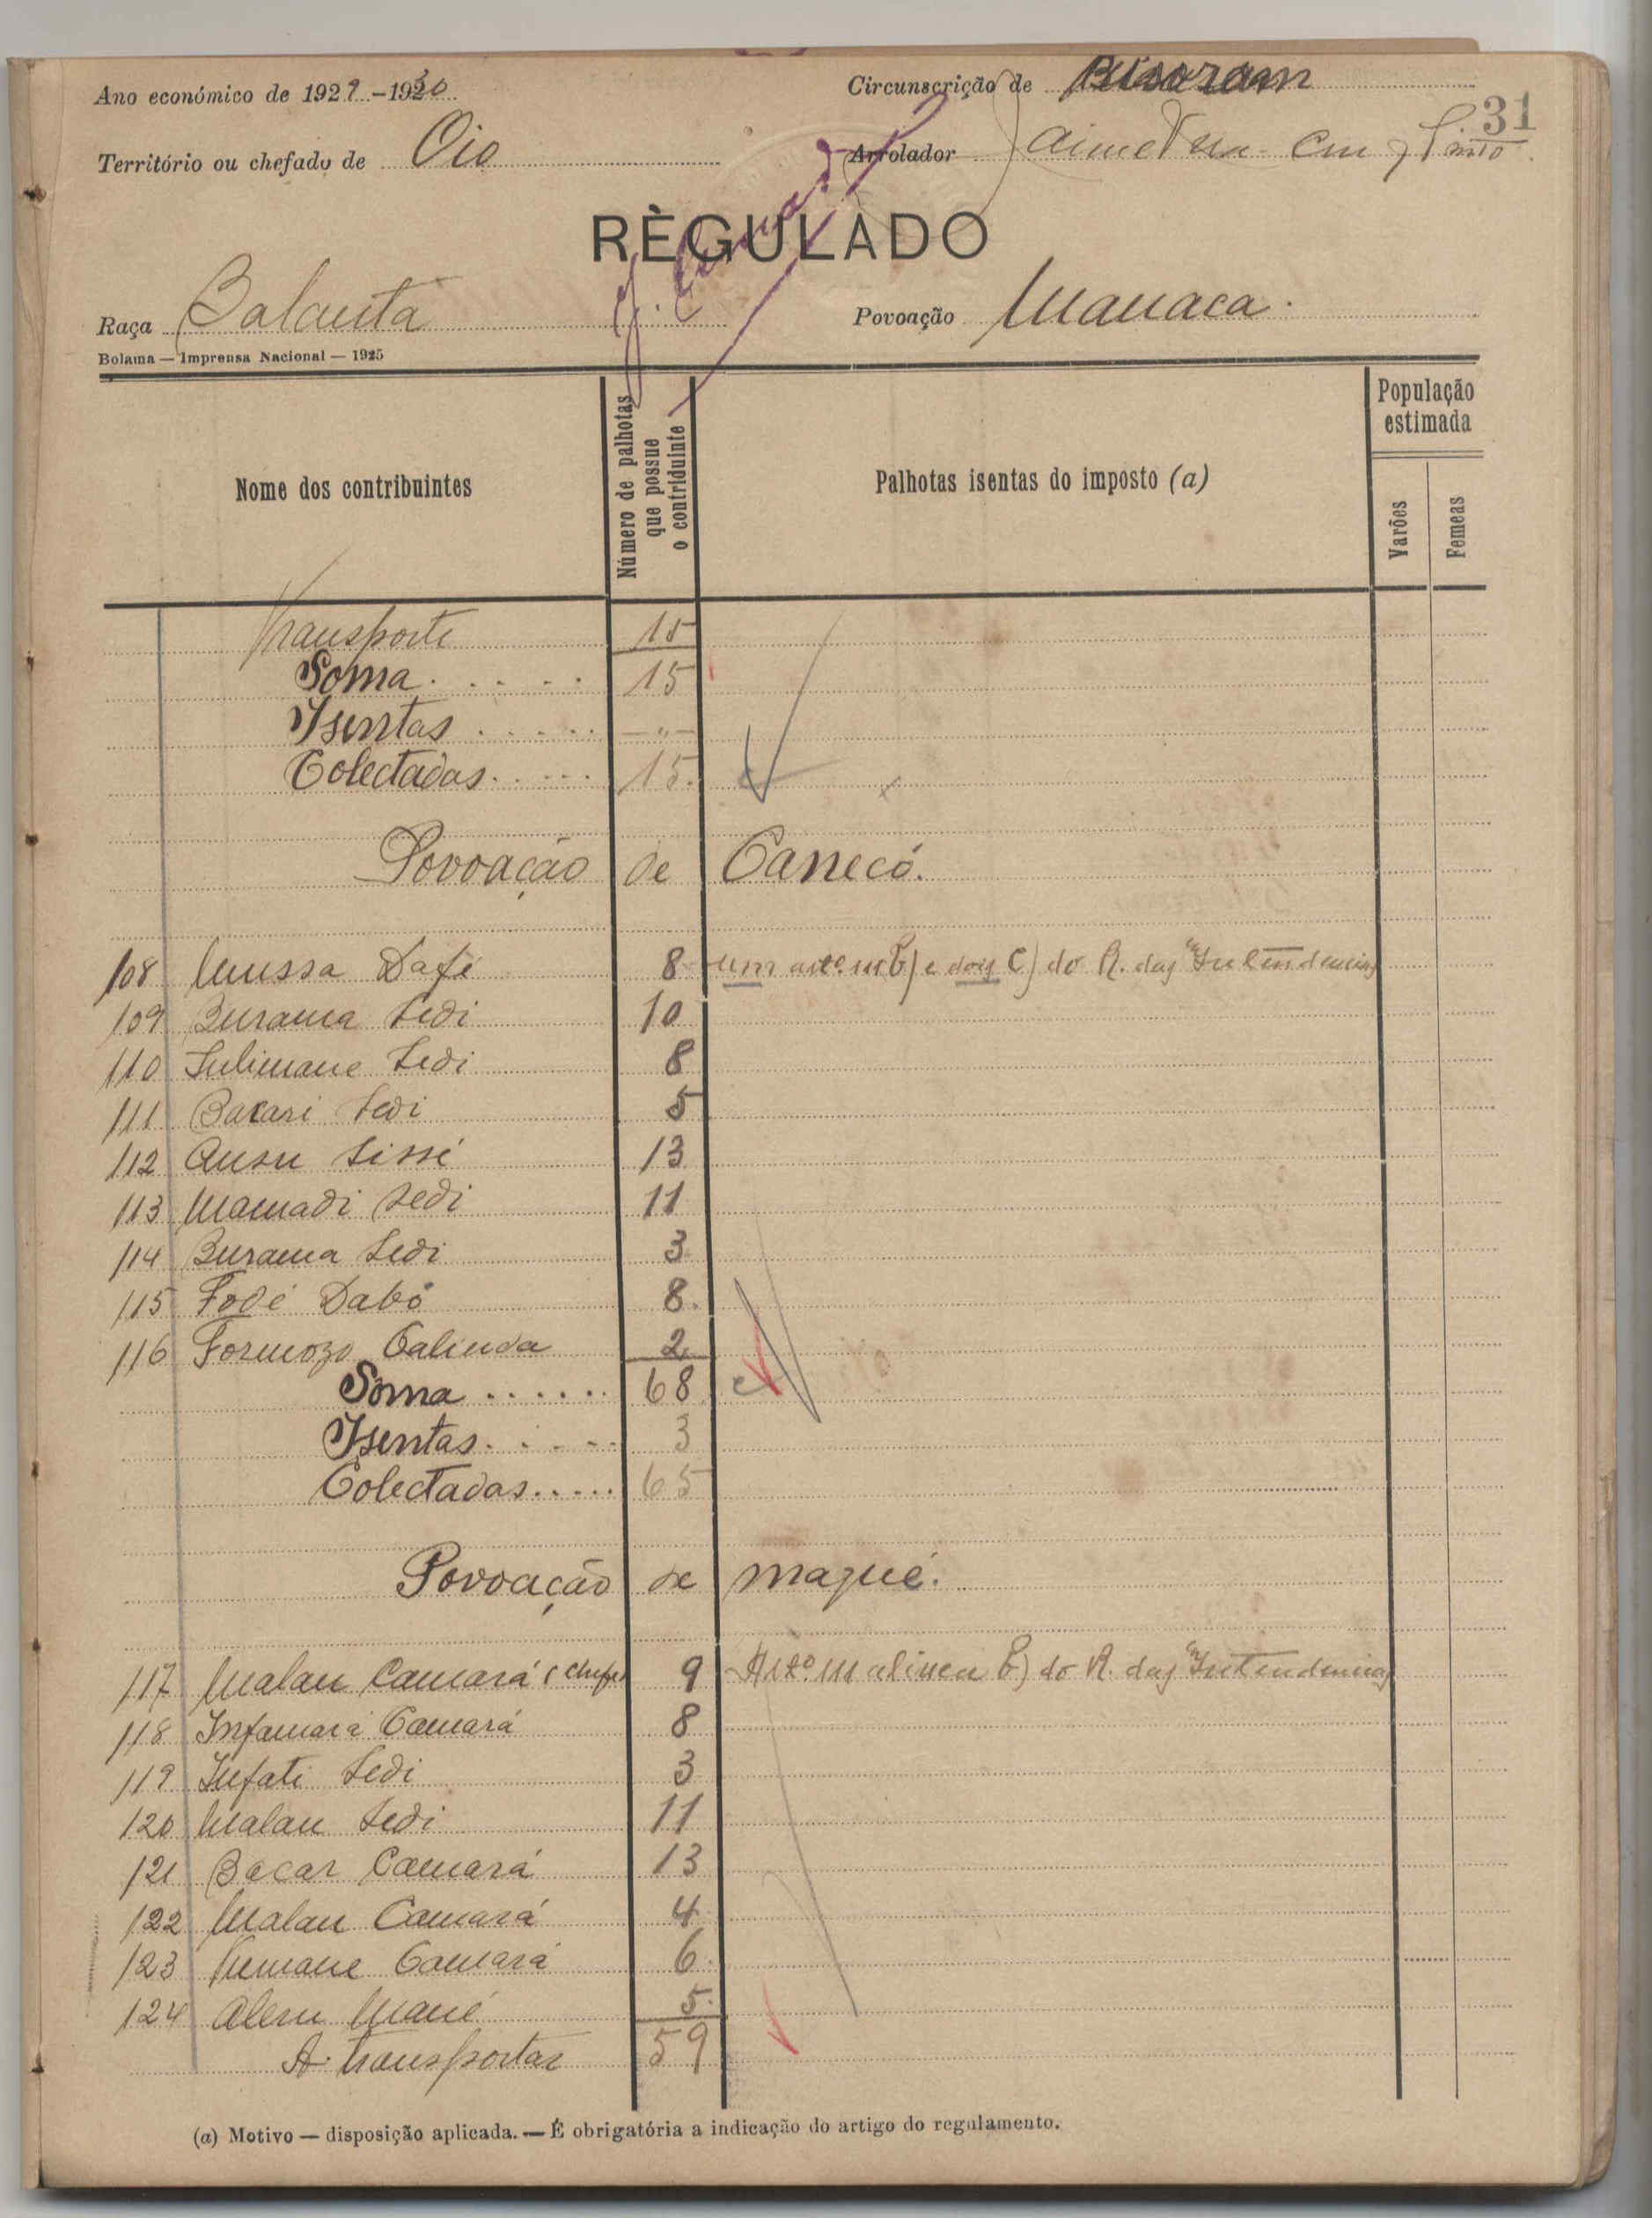 Ano económico de 1929-1930 Circunscrição de Bissoram
31
Território ou chefado de Oio Arrolador
RÈGULADO
Raça Balanta Povoação Manaca.
Bolama — Imprensa Nacional — 1925
Nome dos contribuintes
Número de palhotas que possue o contriduinte
Palhotas isentas do imposto (a)
População estimada
Varões
Femeas
Transporte 15
Soma..... 15
Isentas..... —"—
Colectadas..... 15.
Povoação de Canecó.
108 Mussa Dafé 8 um b) e dois c) do R. das Intendencias
109 Burama Sedi 10
110 Sulimane Sedi 8
111 Bacari Sedi 5
112 Ansu Sissé 13
113 Mamadi Sedi 11
114 Burama Sedi 3
115 Fodé Dabó 8.
116 Formozo Galinda 2
Soma...... 68
Isentas..... 3
Colectadas..... 65
Povoação de Maqué.
117 Malan Camará (chefe) 9 Artº 111 alinea b) do R. das Intendencias
118 Infamara Camará 8
119 Infati Sedi 3
120 Malan Sedi 11
121 Bacar Camará 13
122 Malan Camará 4
123 Camará 6.
124 Mané 5.
A transportar 59
(a) Motivo — disposição aplicada. — É obrigatória a indicação do artigo do regulamento.